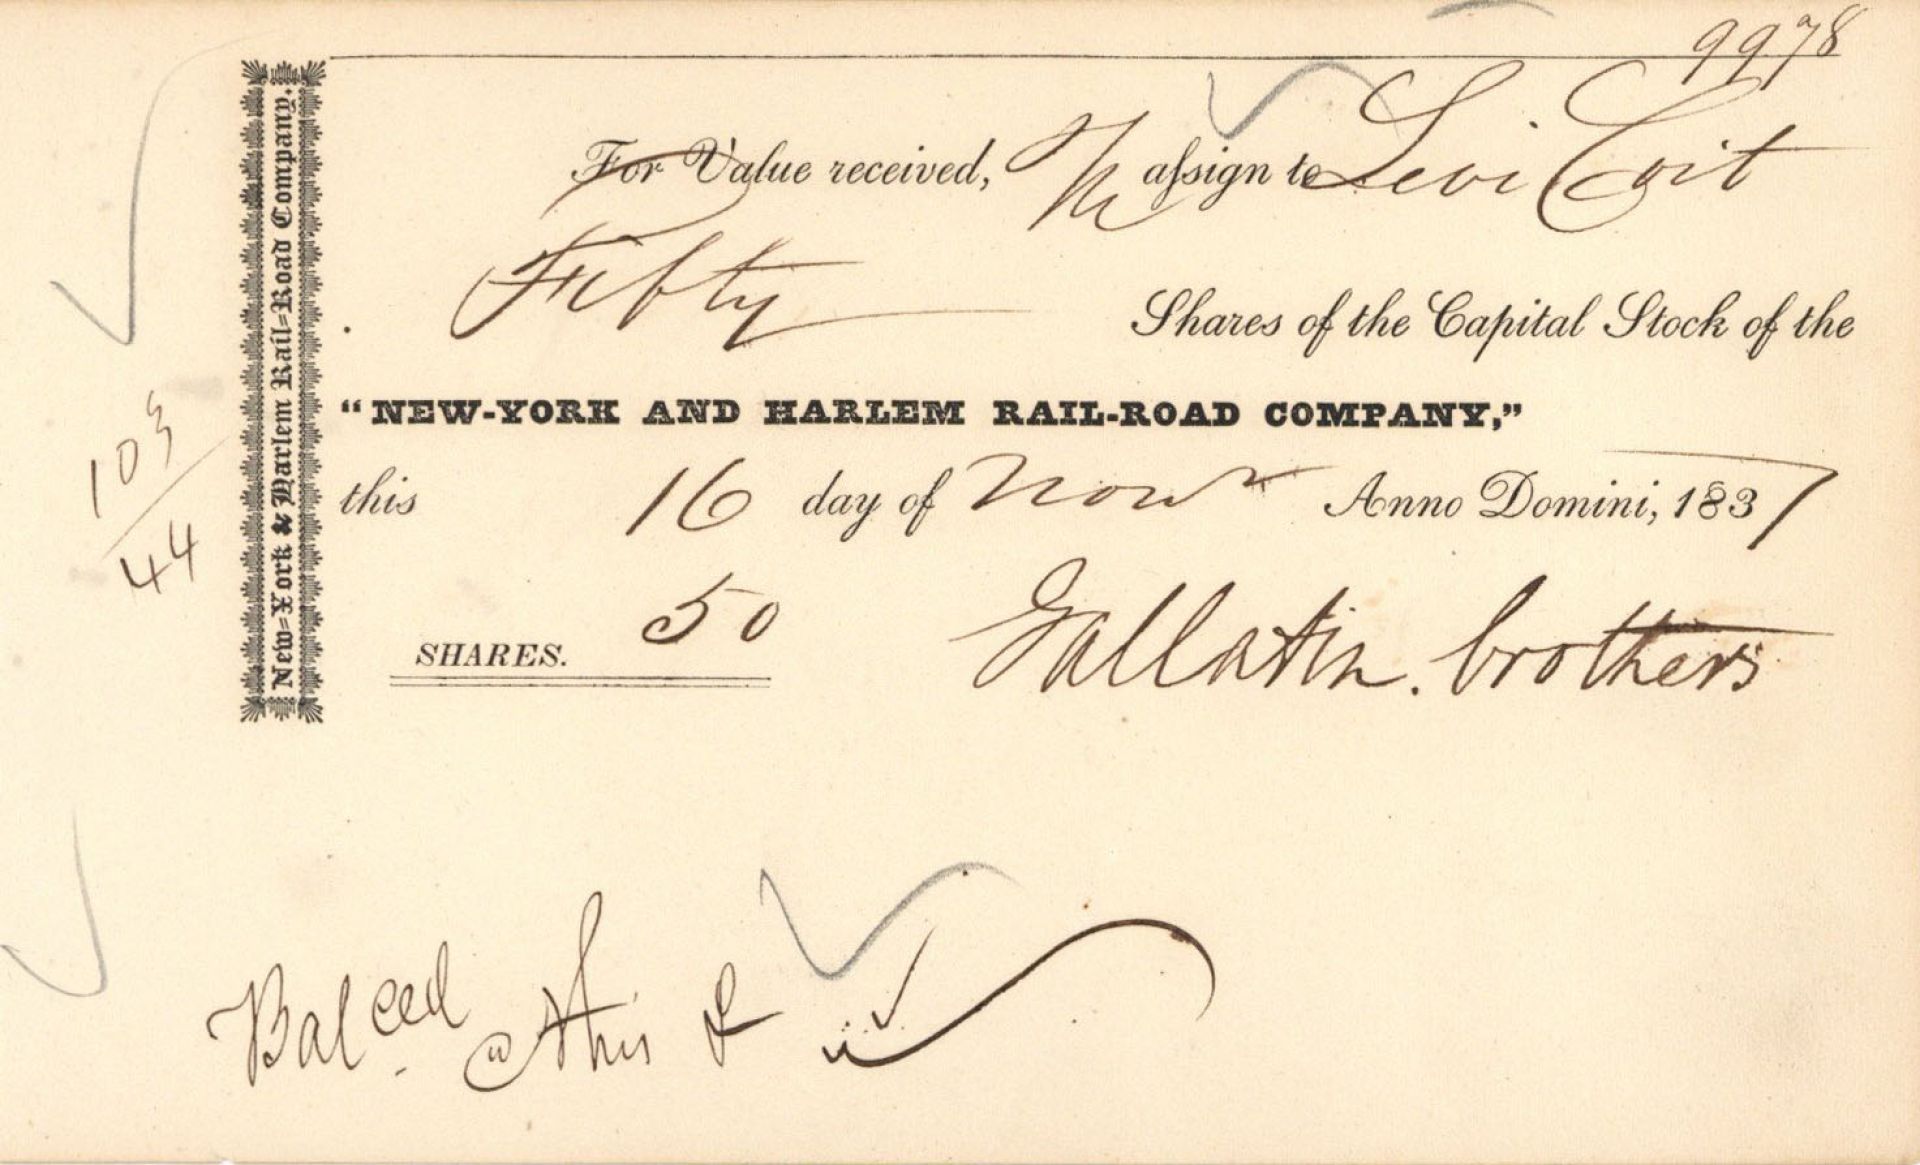 9978
For Value received, We assign to Levi Coit
Fifty Shares of the Capital Stock of the
"NEW-YORK AND HARLEM RAIL-ROAD COMPANY,"
this 16 day of Novr Anno Domini, 1837
SHARES. 50
Gallatin. brothers
New-York & Harlem Rail-Road Company.
103
44
Balced @ this